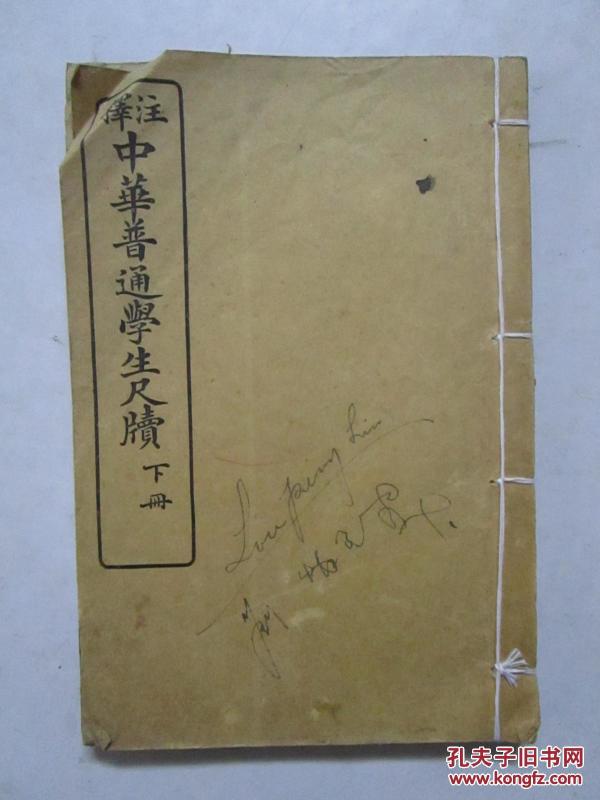 注釋
中華普通學生尺牘
下冊
孔夫子旧书网
www.kongfz.com